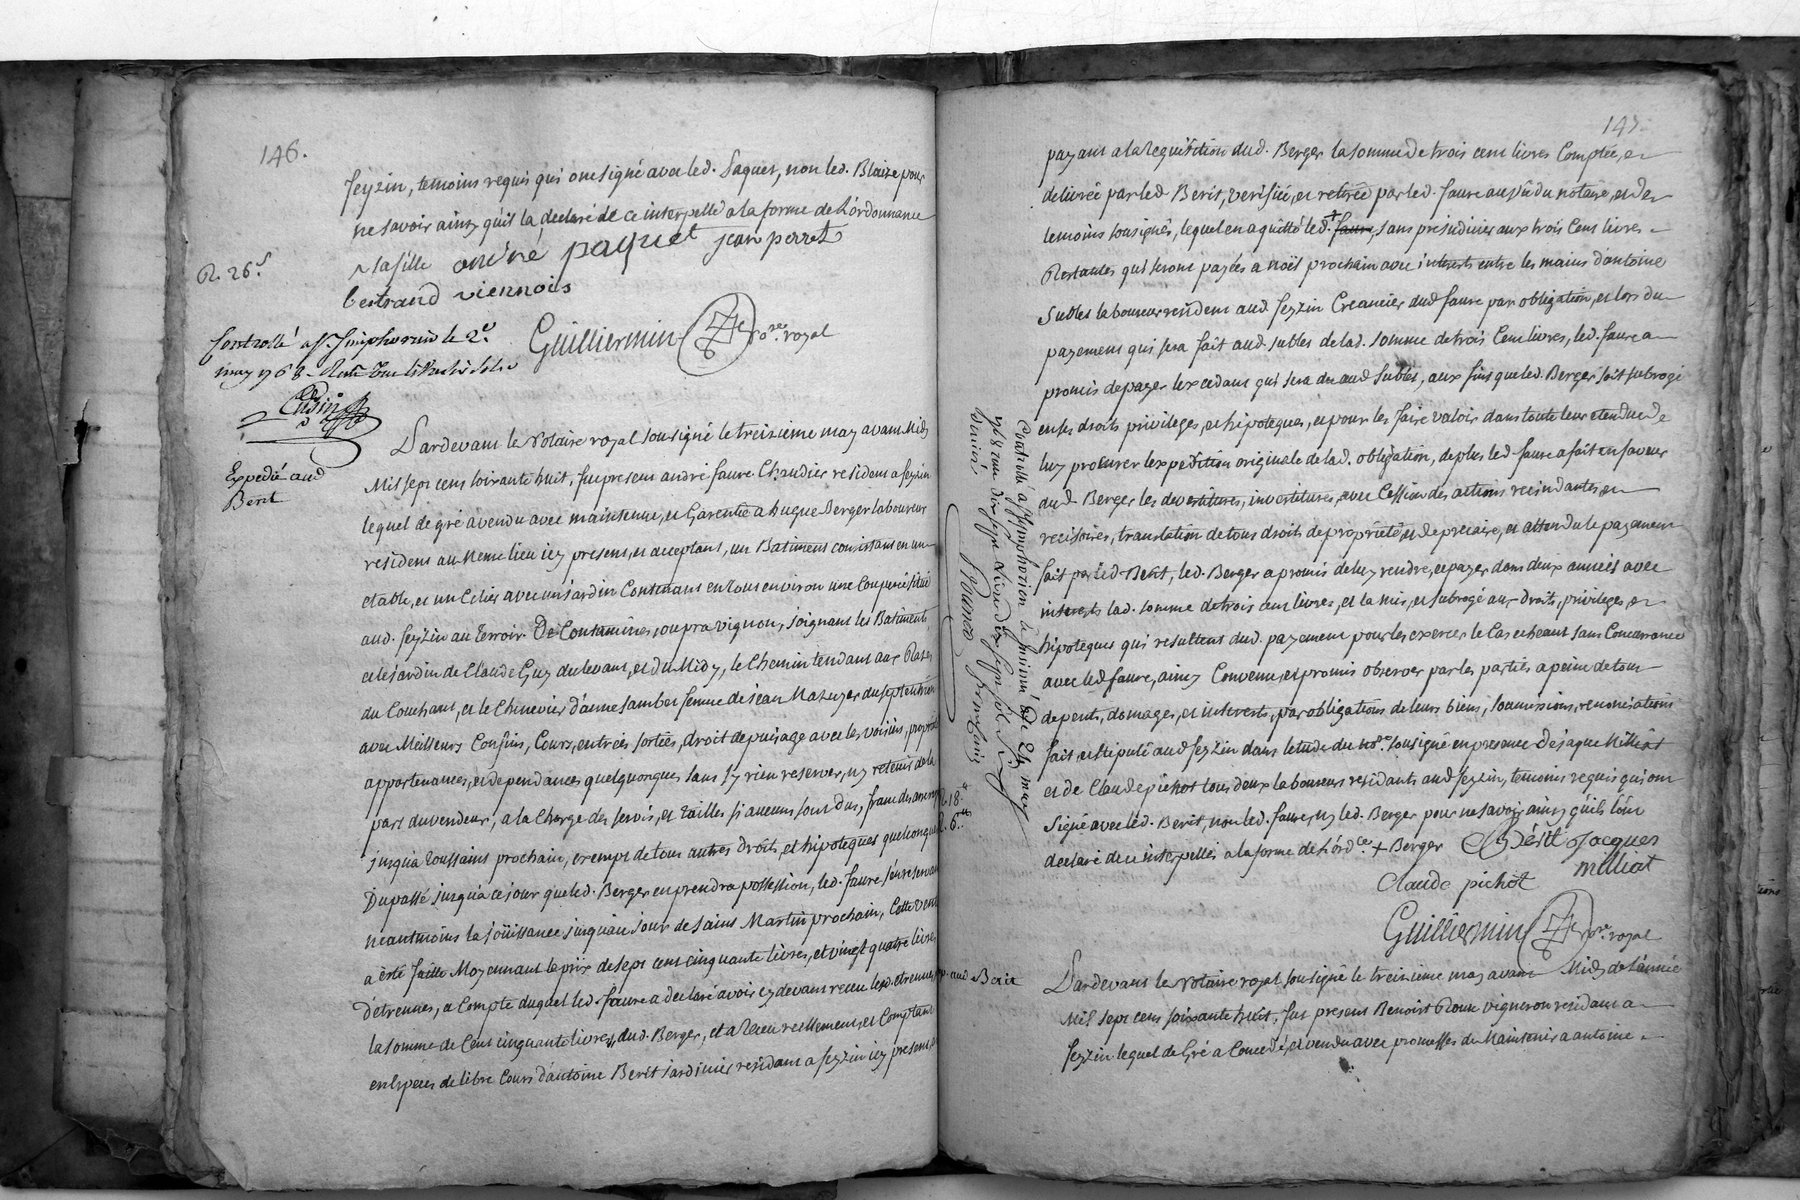 146.
feyzin, temoins requis qui ont signé avec led. Paquet, non led. Blaize pour
ne savoir ainsy qu'il la declaré de ce interpellé a la forme de l'ordonnance
andre paquet jean perret
bertrand viennois
R. 26.s
Guilliermin no.re royal
Controllé a St. Simphorien le 2.e
may 1768
Expedié aud
Berit
Pardevant le Notaire royal sousigné le treizieme may avant Midy
Mil sept cent soixante huit, fut present andré faure Chandier resident a feyzin
lequel de gré a vendu avec maintenue, et Garentie a hugue Berger laboureur
resident au meme lieu icy present, et acceptant, un Batiment consistant en un
etable, et un Celier avec un jardin Contenant en tout environ une Couperée situé
aud. feyzin au terroir De Contamines, ou pra vignon, joignant les Batiments
et le jardin de Claude Guy du levant, et du Midy, le Chemin tendant aux Razes
du Couchant, et le Chenevier d'anne Jambet femme de jean Mazuyer du septentrion
avec Meilleurs Confins, Cours, entrées sorties, droit de puisage avec les voisins,
appartenances, et dependances quelquonques sans sy rien reserver, ny retenir de la
part du vendeur, a la Charge des servis, et tailles si aucuns sont dus, franc des
jusqu'a toussaint prochain, exempt de tous autres droits, et hipoteques quelconques
Du passé jusqu'a ce jour que led. Berger en prendra possession, led. faure s'en reservant
neantmoins la joüissance jusqu'au jour de saint Martin prochain, Cette vente
a eté faitte Moyennant le prix de sept cent cinquante livres, et vingt quatre livres
d'etrennes, a Compte duquel led. faure a declaré avoir cy devant receu lesd. etrennes
la somme de Cent cinquante livres, dud. Berger, et a Receu reellement, et Comptant
en Especes de libre Cours d'antoine Berit jardinier residant a feyzin icy present,
147.
payant a la requisition dud. Berger la somme de trois cent livres Comptée, et
delivrée par led Berit, verifiée, et retirée par led. faure au vû du notaire, et des
temoins sousignés, lequel en a quitté led. + faure, sans prejudicier aux trois Cent livres
Restantes qui seront payées a noël prochain avec interests entre les mains d'antoine
Subles laboureur resident aud feyzin Creancier dud faure par obligation, et lors du
payement qui sera fait aud. subles de lad. somme de trois Cent livres, led. faure a
promis de payer l'excedant qui sera du aud Subles, aux fins que led. Berger soit subrogé
en ses droits privileges, et hipoteques, et pour les faire valoir dans toute leur etendue de
luy procurer l'expedition originale de lad. obligation, de plus led faure a fait en faveur
dud Berger les devestitures, investitures, avec Cession des actions recindantes et
recisoires, translation de tous droits de proprieté et de precaire, et attendu le payement
fait par led Berit, led. Berger a promis de luy rendre, et payer dans deux années avec
interests lad. somme de trois cent livres, et la mis, et subrogé aux droits, privileges, et
hipoteques qui resultent dud. payement pour les exercer le Cas echeant sans Concurrance
avec led faure, ainsy Convenu, et promis observer par les parties a peine de tous
depents, domages, et interests, par obligations de leurs biens, soumissions, renonciations
fait, et stipulé aud feyzin dans l'etude du no.re sousigné en presence de jaque Milliat
et de Claude pichot tous deux laboureurs residants aud feyzin, temoins requis qui ont
signé avec led. Berit, non led. faure, ny led. Berger pour ne savoir ainsy qu'ils l'ont
declaré de ce interpellés a la forme de l'ord.ce + Berger
A Bérit Jacques
milliat
Claude pichot
Guilliermin no.re royal
Controllé a St. Simphorien le 24 may
R. 18.s
aud Berit
Pardevant le Notaire royal sousigné le treizieme may avant Midy de l'année
Mil sept cent soixante huit, fut present Benoist vigneron residant a
feyzin lequel de Gré a Concedé, et vendu avec promesses de Maintenir a antoine